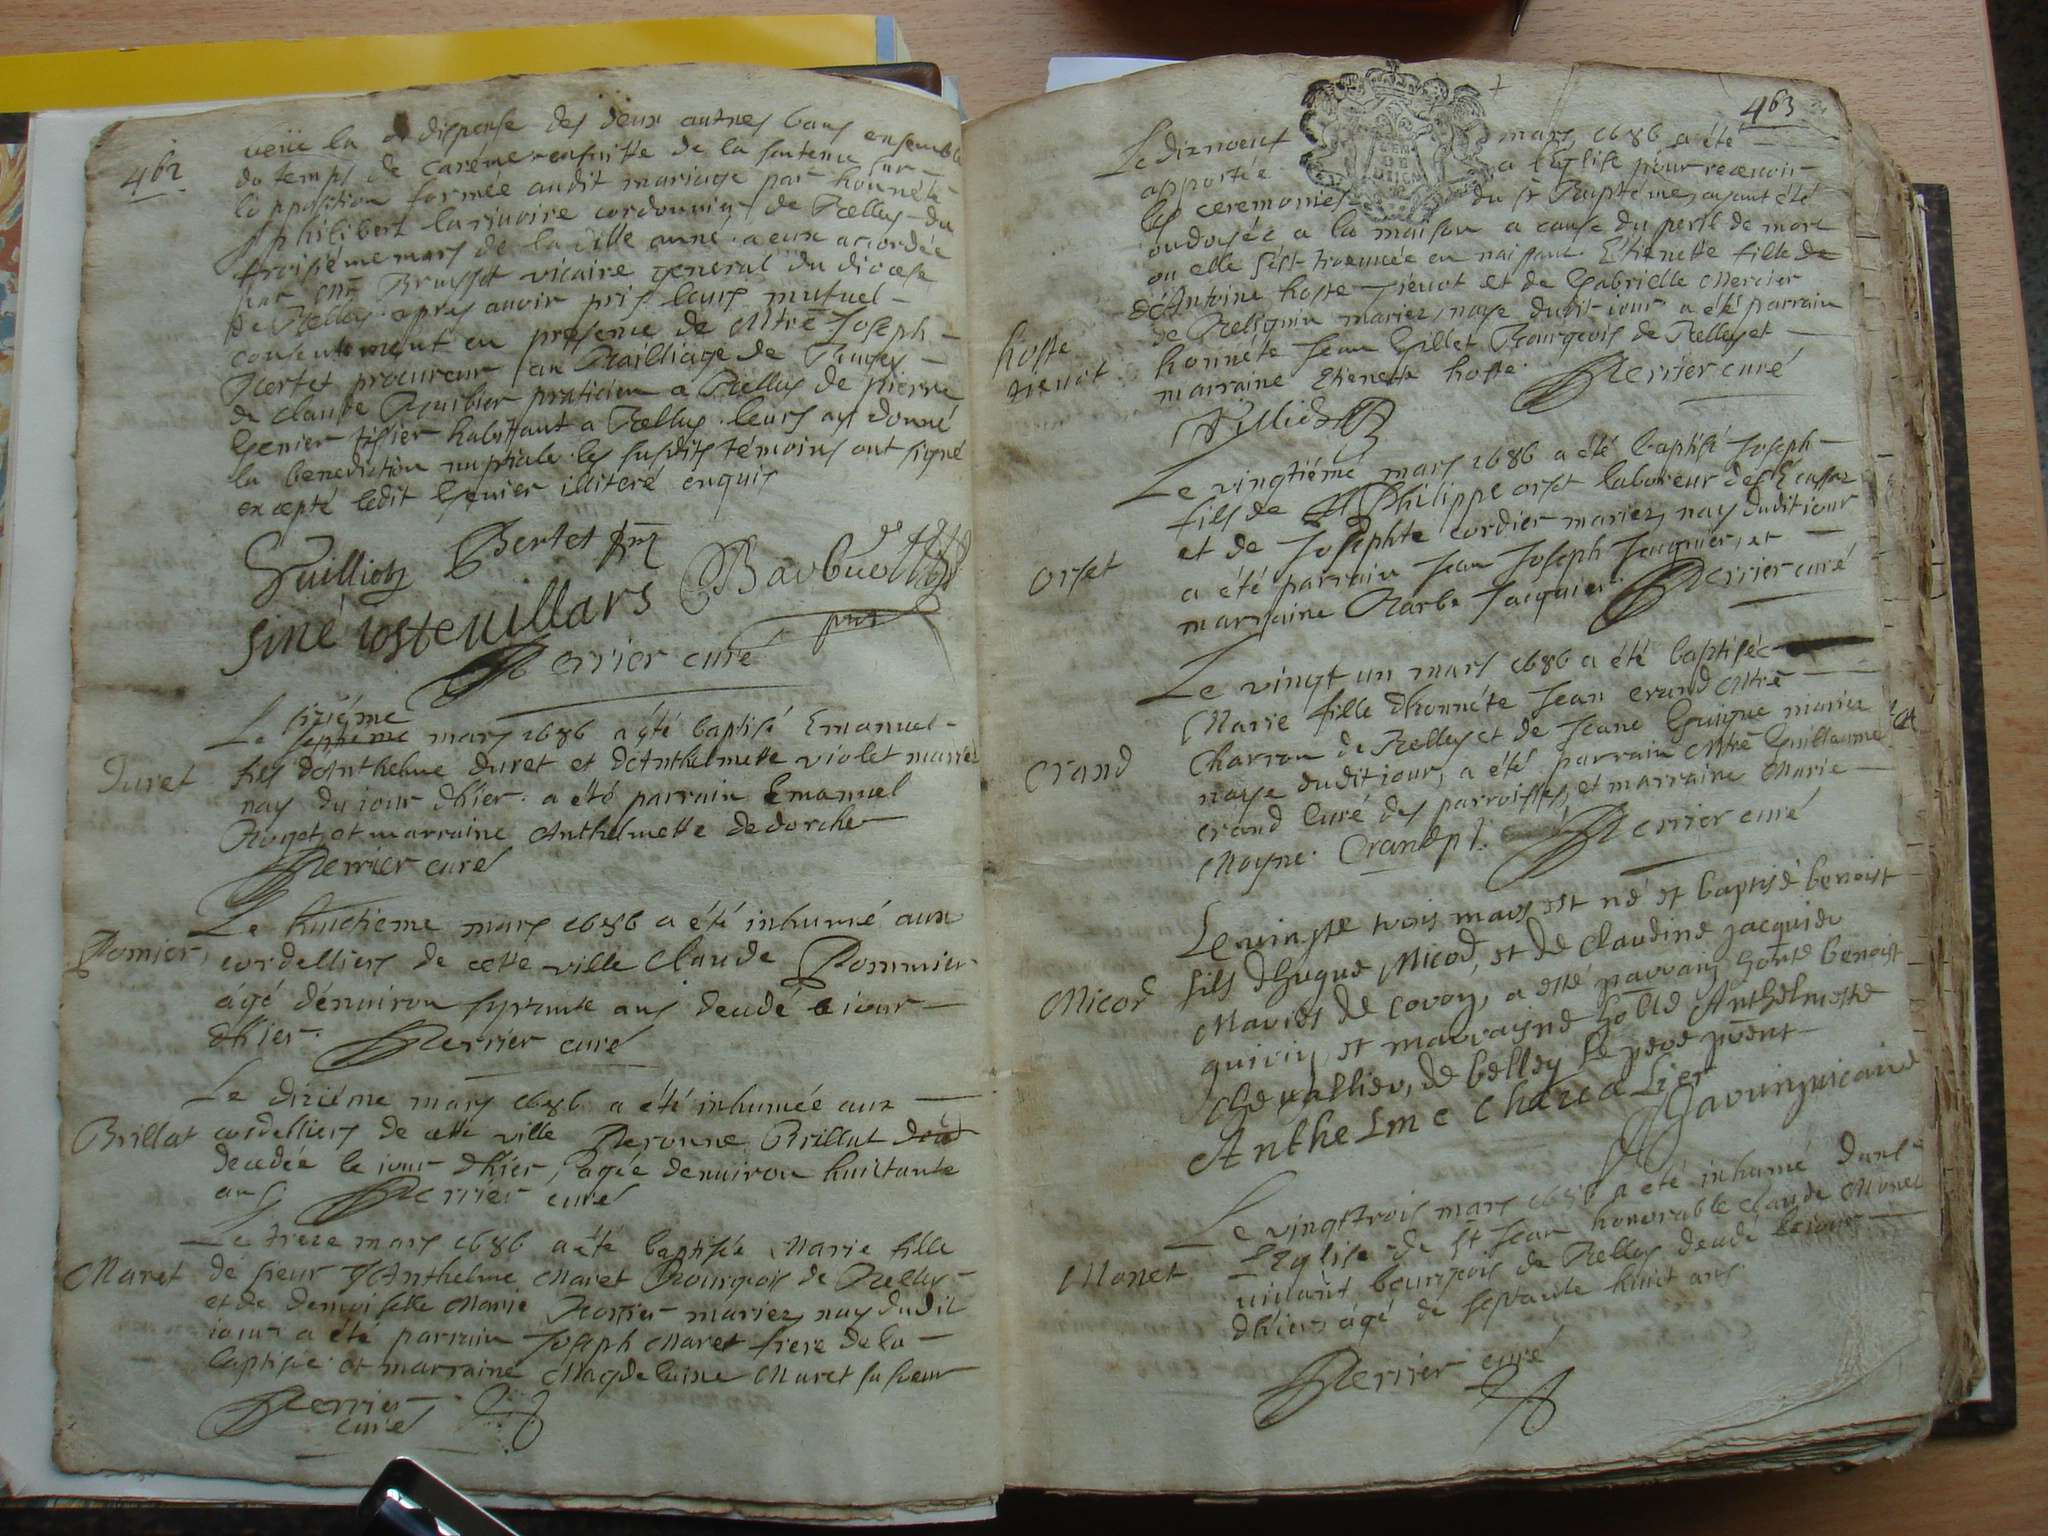 462
veüe la dispense des deux autres bans ensemble
du temps de caréme ensuitte de la sentence sur
l'opposition formée audit mariage par honnéte
philibert larivoire cordonnier de Belley du
troisiéme mars de la ditte année a eux accordée
par Brusset vicaire general du diocese
de Belley apres auoir pris leurs mutuel
consentement en presence de Mtre Joseph
Bertet procureur au Bailliage de Bugey
de claude Barbier praticien a Belley de pierre
Genier tisier habitant a Belley leurs ay donné
la benediction nuptiale les susdits témoins ont signé
excepté ledit Genier illiteré enquis
Guilliot Bertet
Barbier
siné iostevillars
Perrier curé
Duret
siziéme
Le septieme mars 1686 a été baptisé Emanuel
fils d'Anthelme Duret et d'Anthelmette violet mariés
nay du iour d'hier a été parrain Emanuel
Roget et marraine Anthelmette dedorche
Perrier curé
Pomier
Le huictieme mars 1686 a été inhumé aux
cordelliers de cette ville Claude Pommier
ágé d'enuiron septante ans decedé le iour
d'hier. Perrier curé
Brillat
Le diziéme mars 1686 a été inhumée aux
cordelliers de cette ville Peronne Brillat
decedée le iour d'hier, agée denuiron huictante
ans Perrier curé
Maret
Le treze mars 1686 a été baptisée Marie fille
de sieur Anthelme Maret Bourgeois de Belley
et de demoiselle Marie mariez nay dudit
iour a été parrain Joseph Maret frere de la
baptisée et marraine Magdelaine Maret sa soeur
Perrier
curé
463
Le dixneuf mars 1686 a été
apportée a l'Eglise pour receuoir
les ceremonies du st Baptéme, ayant été
ondoyée a la maison a cause du peril de mort
ou elle s'est trouuée en naissant Etienette fille de
d'Antoine hoste Jenot et de Gabrielle Mercier
de Belignin mariez, naye dudit iour a été parrain
honnéte Jean Gillet Bourgeois de Belley et
marraine Etienette hoste. Perrier curé
hoste
Orset
Le vingtiémé mars 1686 a été baptisé Joseph
fils de Philippe orset laboreur des Ecassaz
et de Josephte cordier mariez, nay dudit iour
a été parrain Jean Joseph Jacquier, et
marraine Barbe Jacquier. Perrier curé
Crand
Le vingt un mars 1686 a été baptisée
Marie fille d'honnéte Jean crand Mtre
Charron de Belley et de Jeane Guigue mariez
naye dudit iour, a été parrain Mtre Guillaume
crand Curé des parroisses, et marraine Marie
Moyne. Crand pt. Perrier curé
Micod
Le uingte trois mars est né et baptisé benoist
fils d'hugue Micod, et de Claudine jacquide
Mariés de covon, a esté parrain honte benoist
quivin, et marrayne hôble Anthelmette
Chevallier, de belley le pere pnt
Anthelme Chavalier
Monet
Le vingttrois mars 1686 a été inhumé dans
l'Eglise de st Jean honorable Claude Monet
viuant bourgeois de Belley decedé le iour
d'hier ágé de septante huict ans
Perrier curé